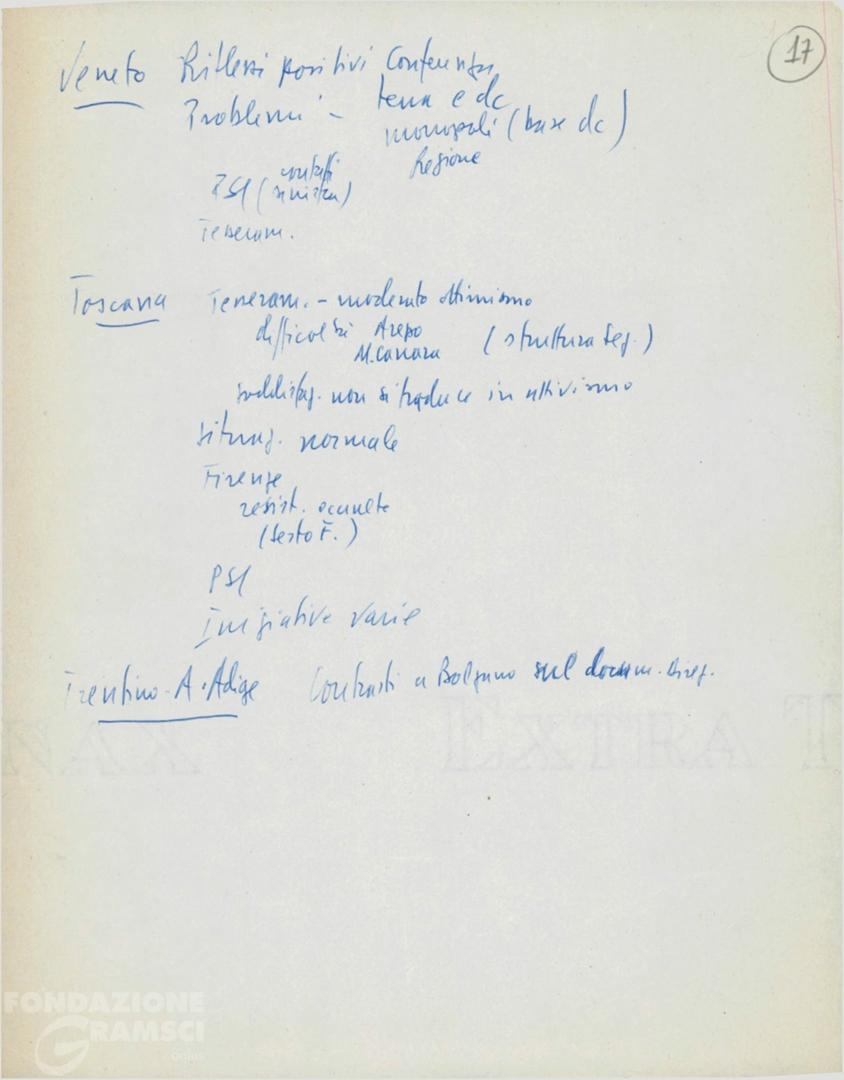 17
Veneto Riflessi positivi Conferenza
Problemi - terra e dc
monopoli (base dc)
Regione
PSI (contatti sinistra)
Tesseram.
Toscana Tesseram. - moderato ottimismo
difficoltà Arezzo
M.Carrara (struttura Seg.)
soddisfaz. non si traduce in attivismo
Situaz. normale
Firenze
resist. occulte
(Sesto F.)
PSI
Iniziative varie
Trentino-A.Adige Contrasti a Bolzano sul docum. Direz.
EXTRA T
FONDAZIONE
GRAMSCI
Online